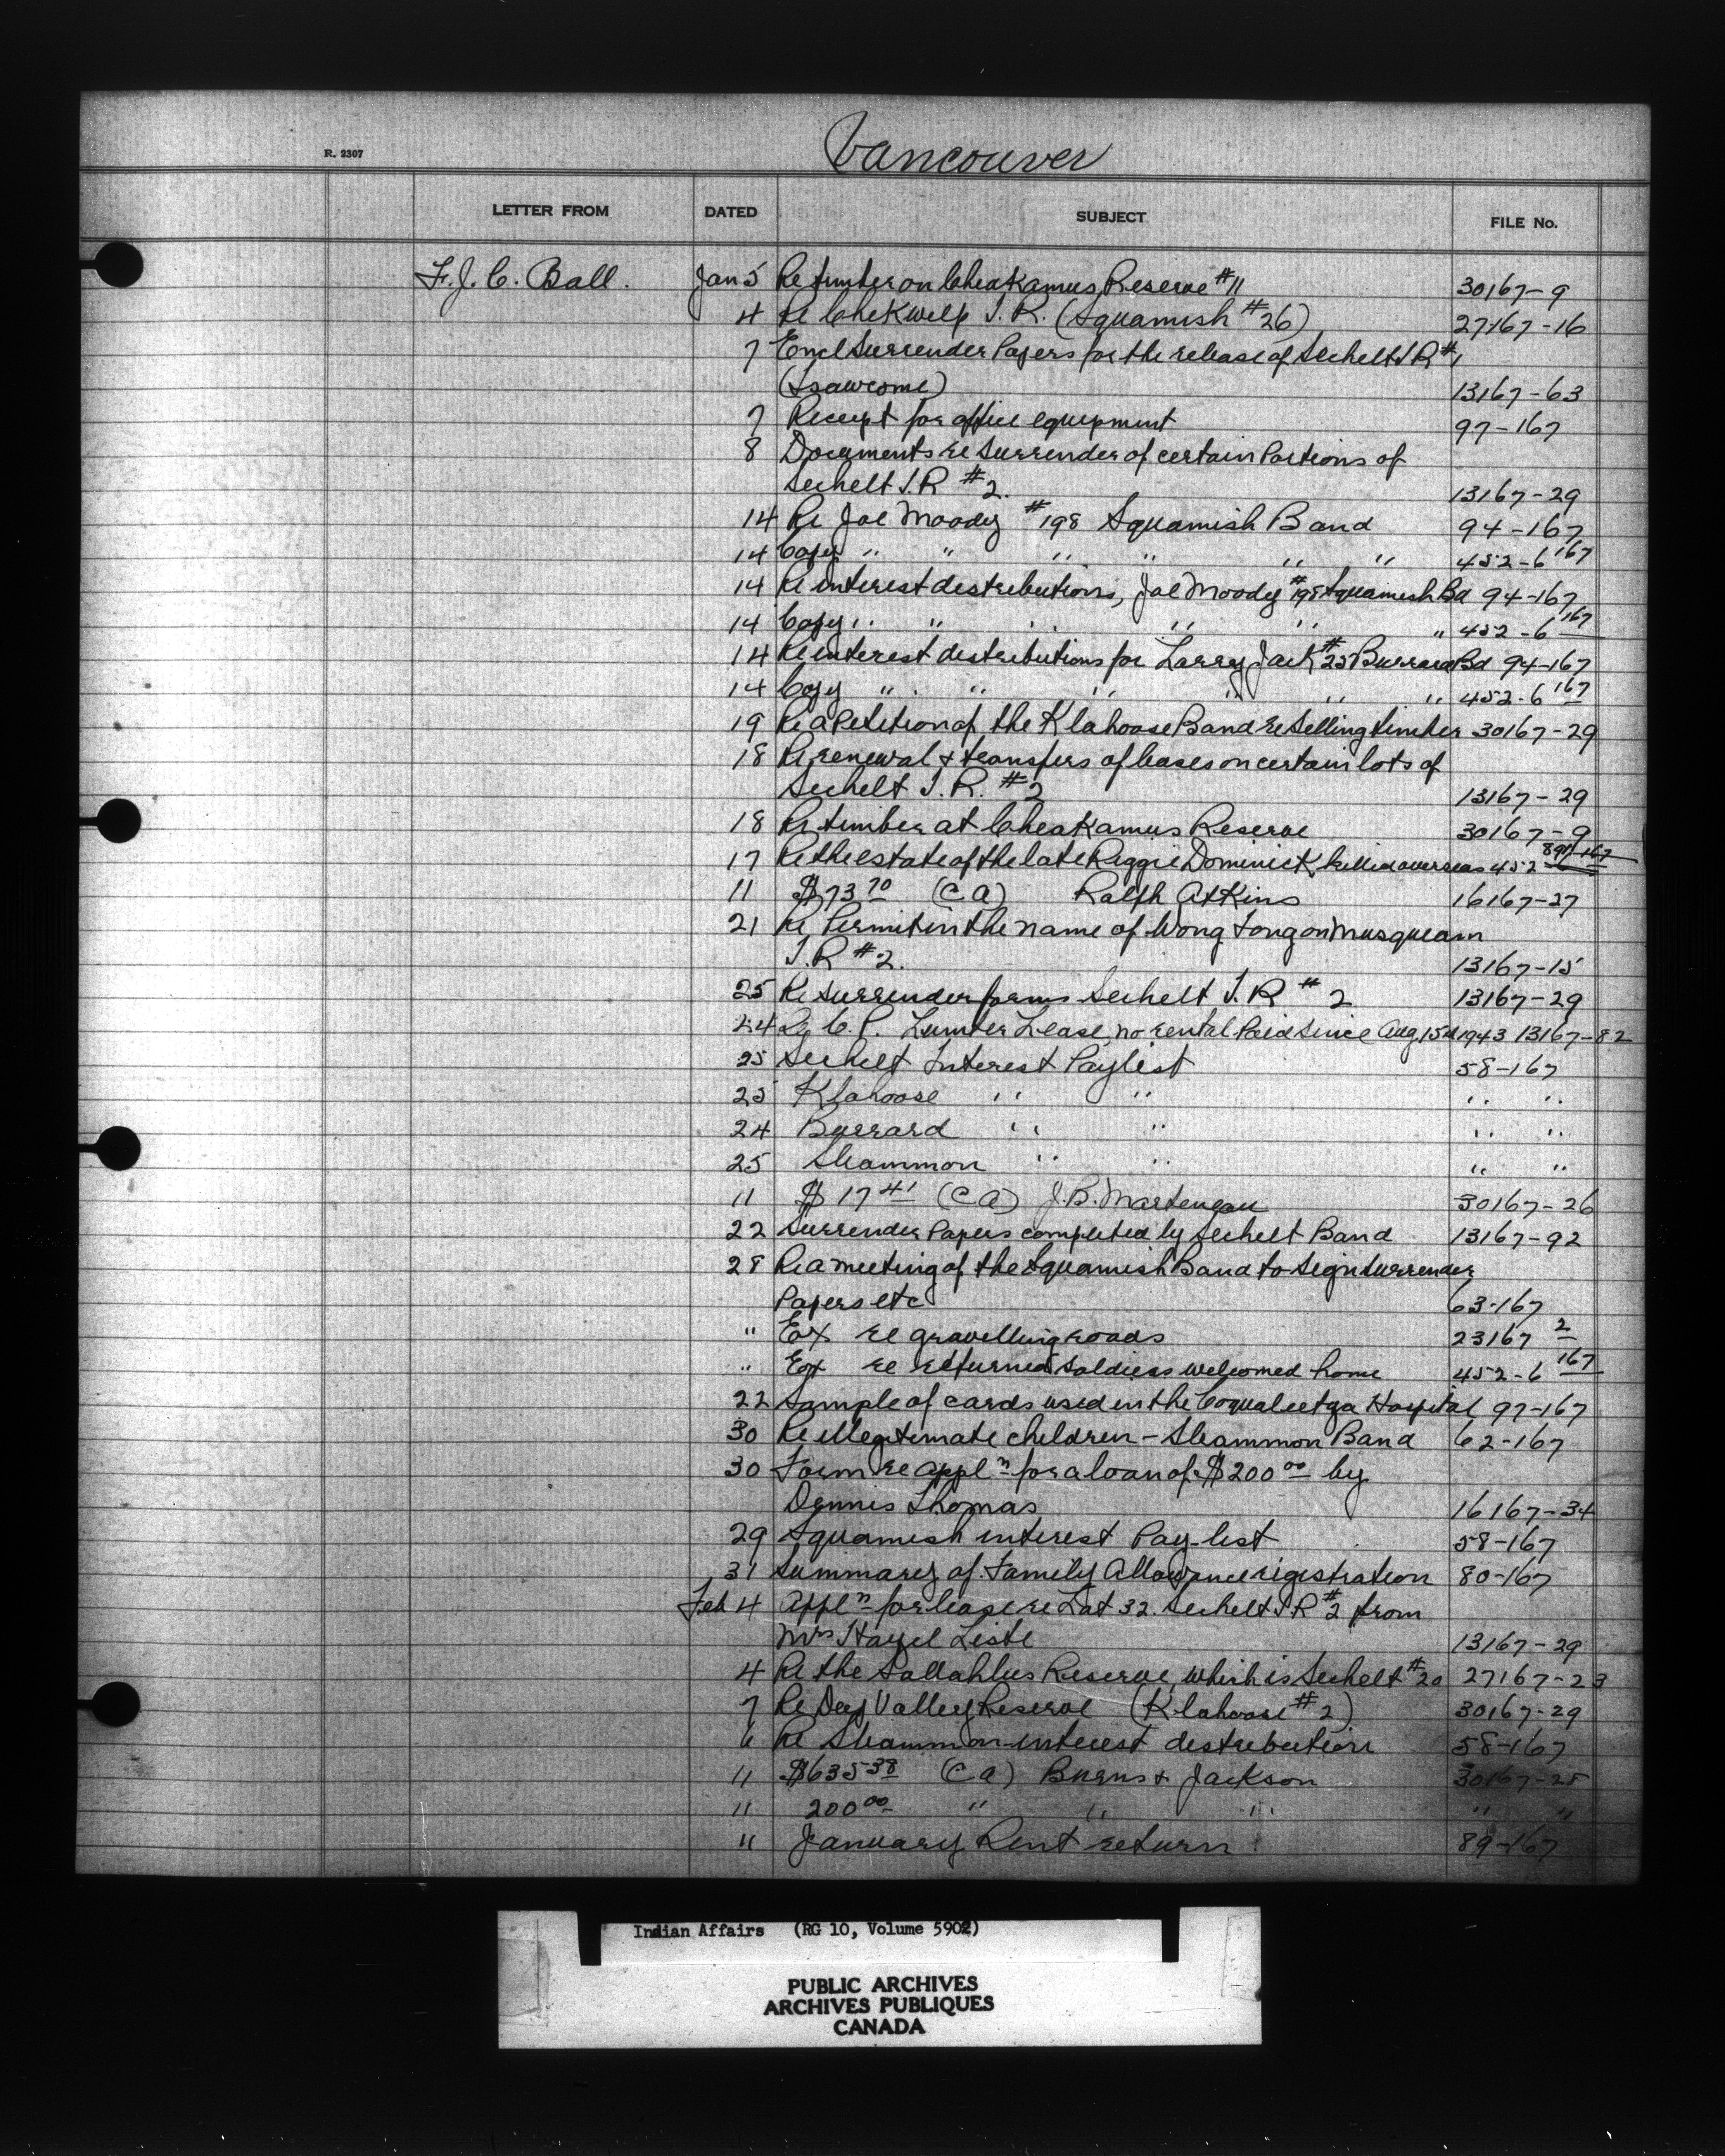 Vancouver
R. 2307
LETTER FROM DATED SUBJECT FILE No.
F. J. C. Ball. Jan 5 Re timber on Cheakamus Reserve #11 30167-9
4 Re Chekwelp I. R. (Squamish #26) 27167-16
7 Encl Surrender Papers for the release of Sechelt I R #1
(Tsawcome) 13167-63
7 Receipt for office equipment 97-167
8 Documents re Surrender of certain Portions of
Sechelt I.R #2. 13167-29
14 Re Joe Moody #198 Squamish Band 94-167
14 Copy " " " " " " 452-6 167
14 Re interest distributions, Joe Moody #198 Squamish Bd 94-167
14 Copy " " " " " " 452-6 167
14 Re interest distributions for Larry Jack #25 Burrard Bd 94-167
14 Copy " " " " " " 452-6 167
19 Re a Petition of the Klahoose Band re Selling timber 30167-29
18 Re renewal & transfers of leases on certain lots of
Sechelt I. R. #2 13167-29
18 Re timber at Cheakamus Reserve 30167-9
17 Re the estate of the late Reggie Dominick, killed overseas 452
11 $73 70 (C A) Ralph Atkins 16167-27
21 Re Permit in the name of Wong Tong on Musqueam
I.R #2. 13167-15
25 Re Surrender forms Sechelt I. R #2 13167-29
24 Re C. P. Lumber Lease, no rental Paid since Aug 15th 1943 13167-82
25 Sechelt Interest Paylist 58-167
25 Klahoose " " " "
24 Burrard " " " "
25 Sliammon " " " "
11 $17 41 (C A) J. B. Marteneau 30167-26
22 Surrender Papers completed by Sechelt Band 13167-92
28 Re a meeting of the Squamish Band to Sign Surrender
Papers etc 63-167
" Ext re gravelling roads 23167 2
" Ext re returned soldiers welcomed home 452-6 167
22 Sample of cards used in the Coqualeetza Hospital 97-167
30 Re illegitimate children - Sliammon Band 62-167
30 Form re appl n for a loan of $200 00 by
Dennis Thomas 16167-34
29 Squamish interest Pay-list 58-167
31 Summary of Family Allowance rigistration 80-167
Feb 4 Appl n for lease re Lot 32. Sechelt I R #2 from
Mrs Hazel Liste 13167-29
4 Re the Sallahlus Reserve, which is Sechelt #20 27167-23
7 Re Deep Valley Reserve (Klahoose #2) 30167-29
6 Re Sliammon interest distribution 58-167
11 $635 38 (C A) Burns & Jackson 30167-25
11 200 00 " " " " "
11 January Rent return 89-167
Indian Affairs (RG 10, Volume 5902)
PUBLIC ARCHIVES
ARCHIVES PUBLIQUES
CANADA